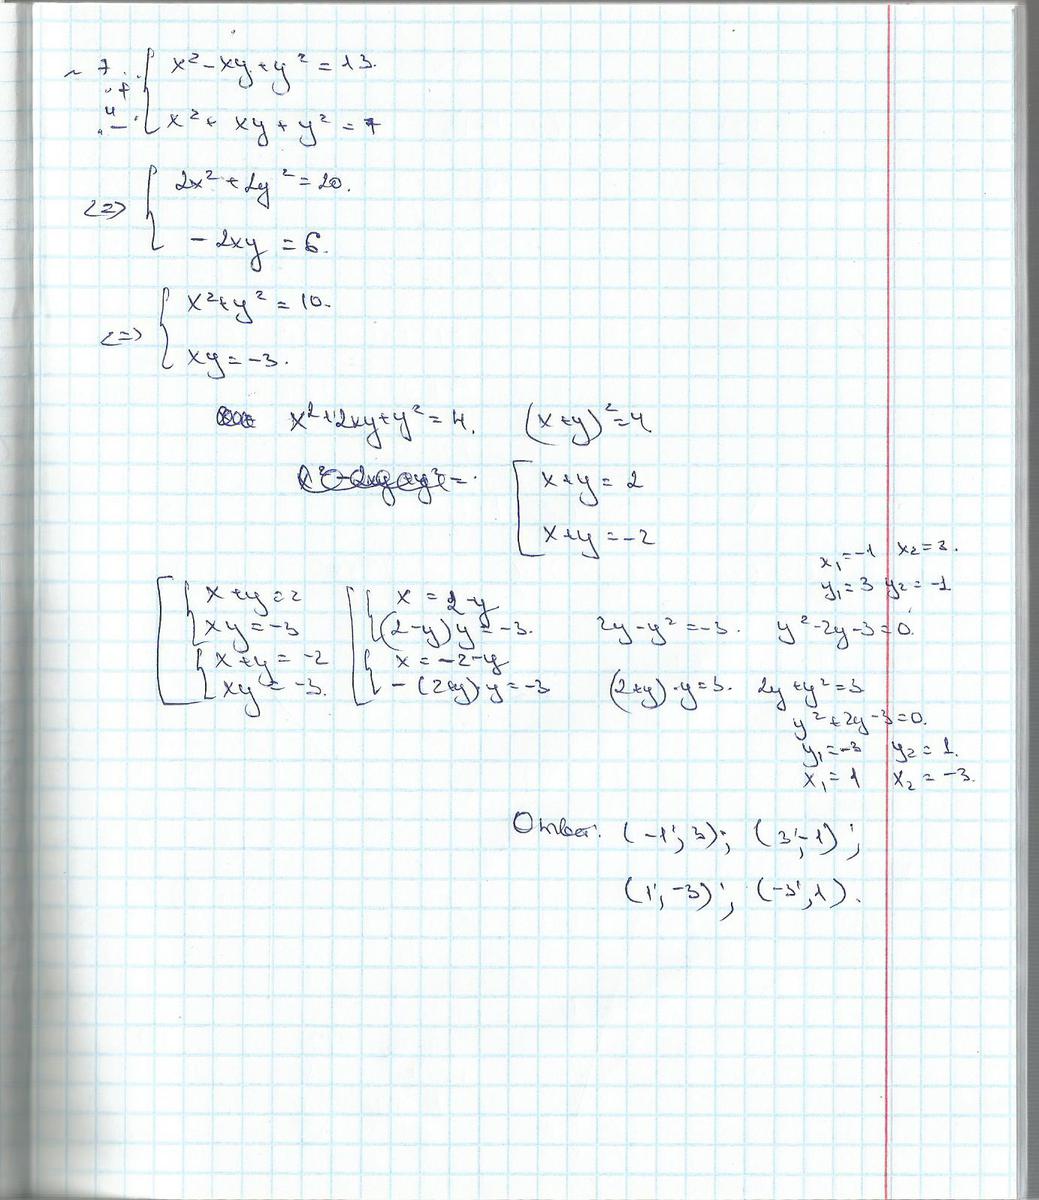 ~ 7. { x² - xy + y² = 13.
x² + xy + y² = 7
<=> { 2x² + 2y² = 20.
- 2xy = 6.
<=> { x² + y² = 10.
xy = -3.
x² + 2xy + y² = 4. (x + y)² = 4
[ x + y = 2
x + y = -2
x₁ = -1 x₂ = 3.
y₁ = 3 y₂ = -1
[ { x + y = 2 [ { x = 2 - y
xy = -3 (2 - y) y = -3. 2y - y² = -3. y² - 2y - 3 = 0.
{ x + y = -2 { x = -2 - y
xy = -3. - (2+y) y = -3 (2+y) · y = 3. 2y + y² = 3
y² + 2y - 3 = 0.
y₁ = -3 y₂ = 1.
x₁ = 1 x₂ = -3.
Ответ: (-1; 3); (3; -1);
(1; -3); (-3; 1).